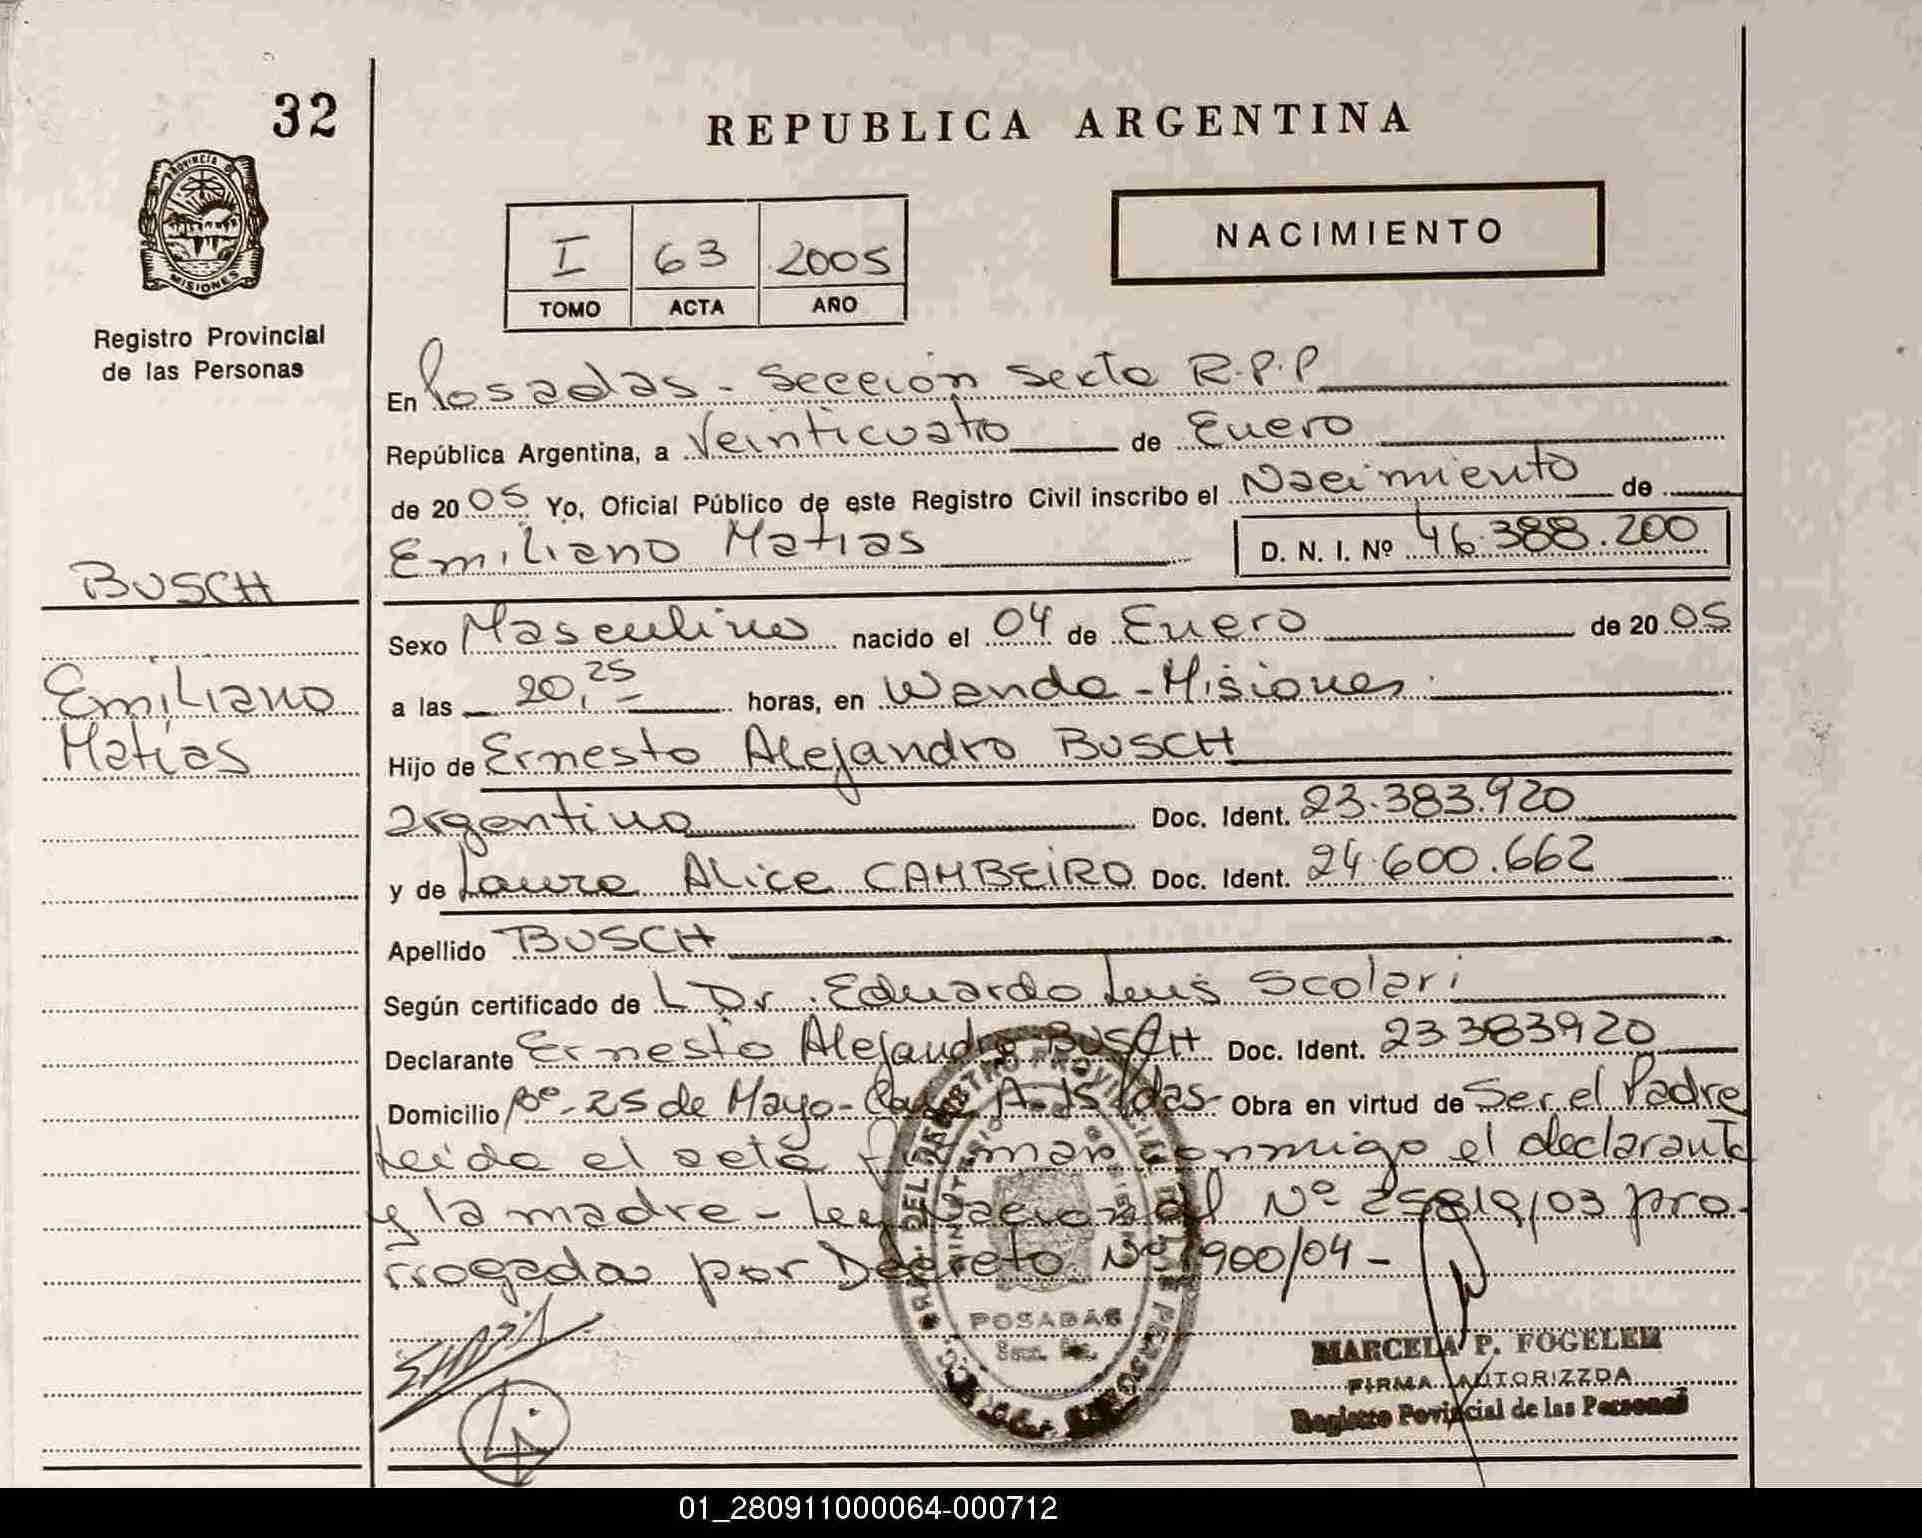 32
REPUBLICA ARGENTINA
PROVINCIA DE
MISIONES
Registro Provincial
de las Personas
I 63 2005
TOMO ACTA AÑO
NACIMIENTO
En Posadas - Sección Sexta R.P.P
República Argentina, a Veinticuatro de Enero
de 2005 Yo, Oficial Público de este Registro Civil inscribo el Nacimiento de
Emiliano Matias D. N. I. Nº 46.388.200
BUSCH
Emiliano
Matías
Sexo Masculino nacido el 04 de Enero de 2005
a las 20,25 horas, en Wanda - Misiones.
Hijo de Ernesto Alejandro BUSCH
argentino Doc. Ident. 23.383.920
y de Laura Alice CAMBEIRO Doc. Ident. 24.600.662
Apellido BUSCH
Según certificado de Dr. Eduardo Luis Scolari
Declarante Ernesto Alejandro BUSCH Doc. Ident. 23383920
Domicilio Bº-25 de Mayo- Obra en virtud de Ser el Padre
Leida el acta firman conmigo el declarante
y la madre - Ley Nacional Nº 25819/03 pro-
rrogada por Decreto Nº 1900/04 -
POSADAS
MARCELA P. FOGELER
FIRMA AUTORIZZDA
Registro Povincial de las Personas
01_280911000064-000712